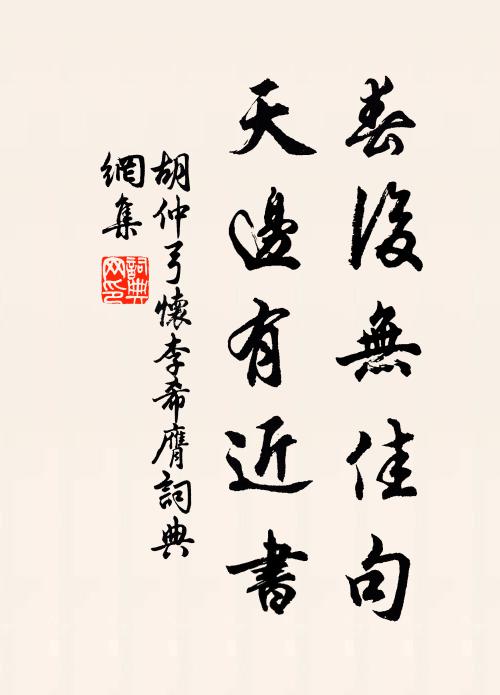 春後無佳句
天邊有近書
胡仲弓懷李希膺詞典
網集
詞典
网印